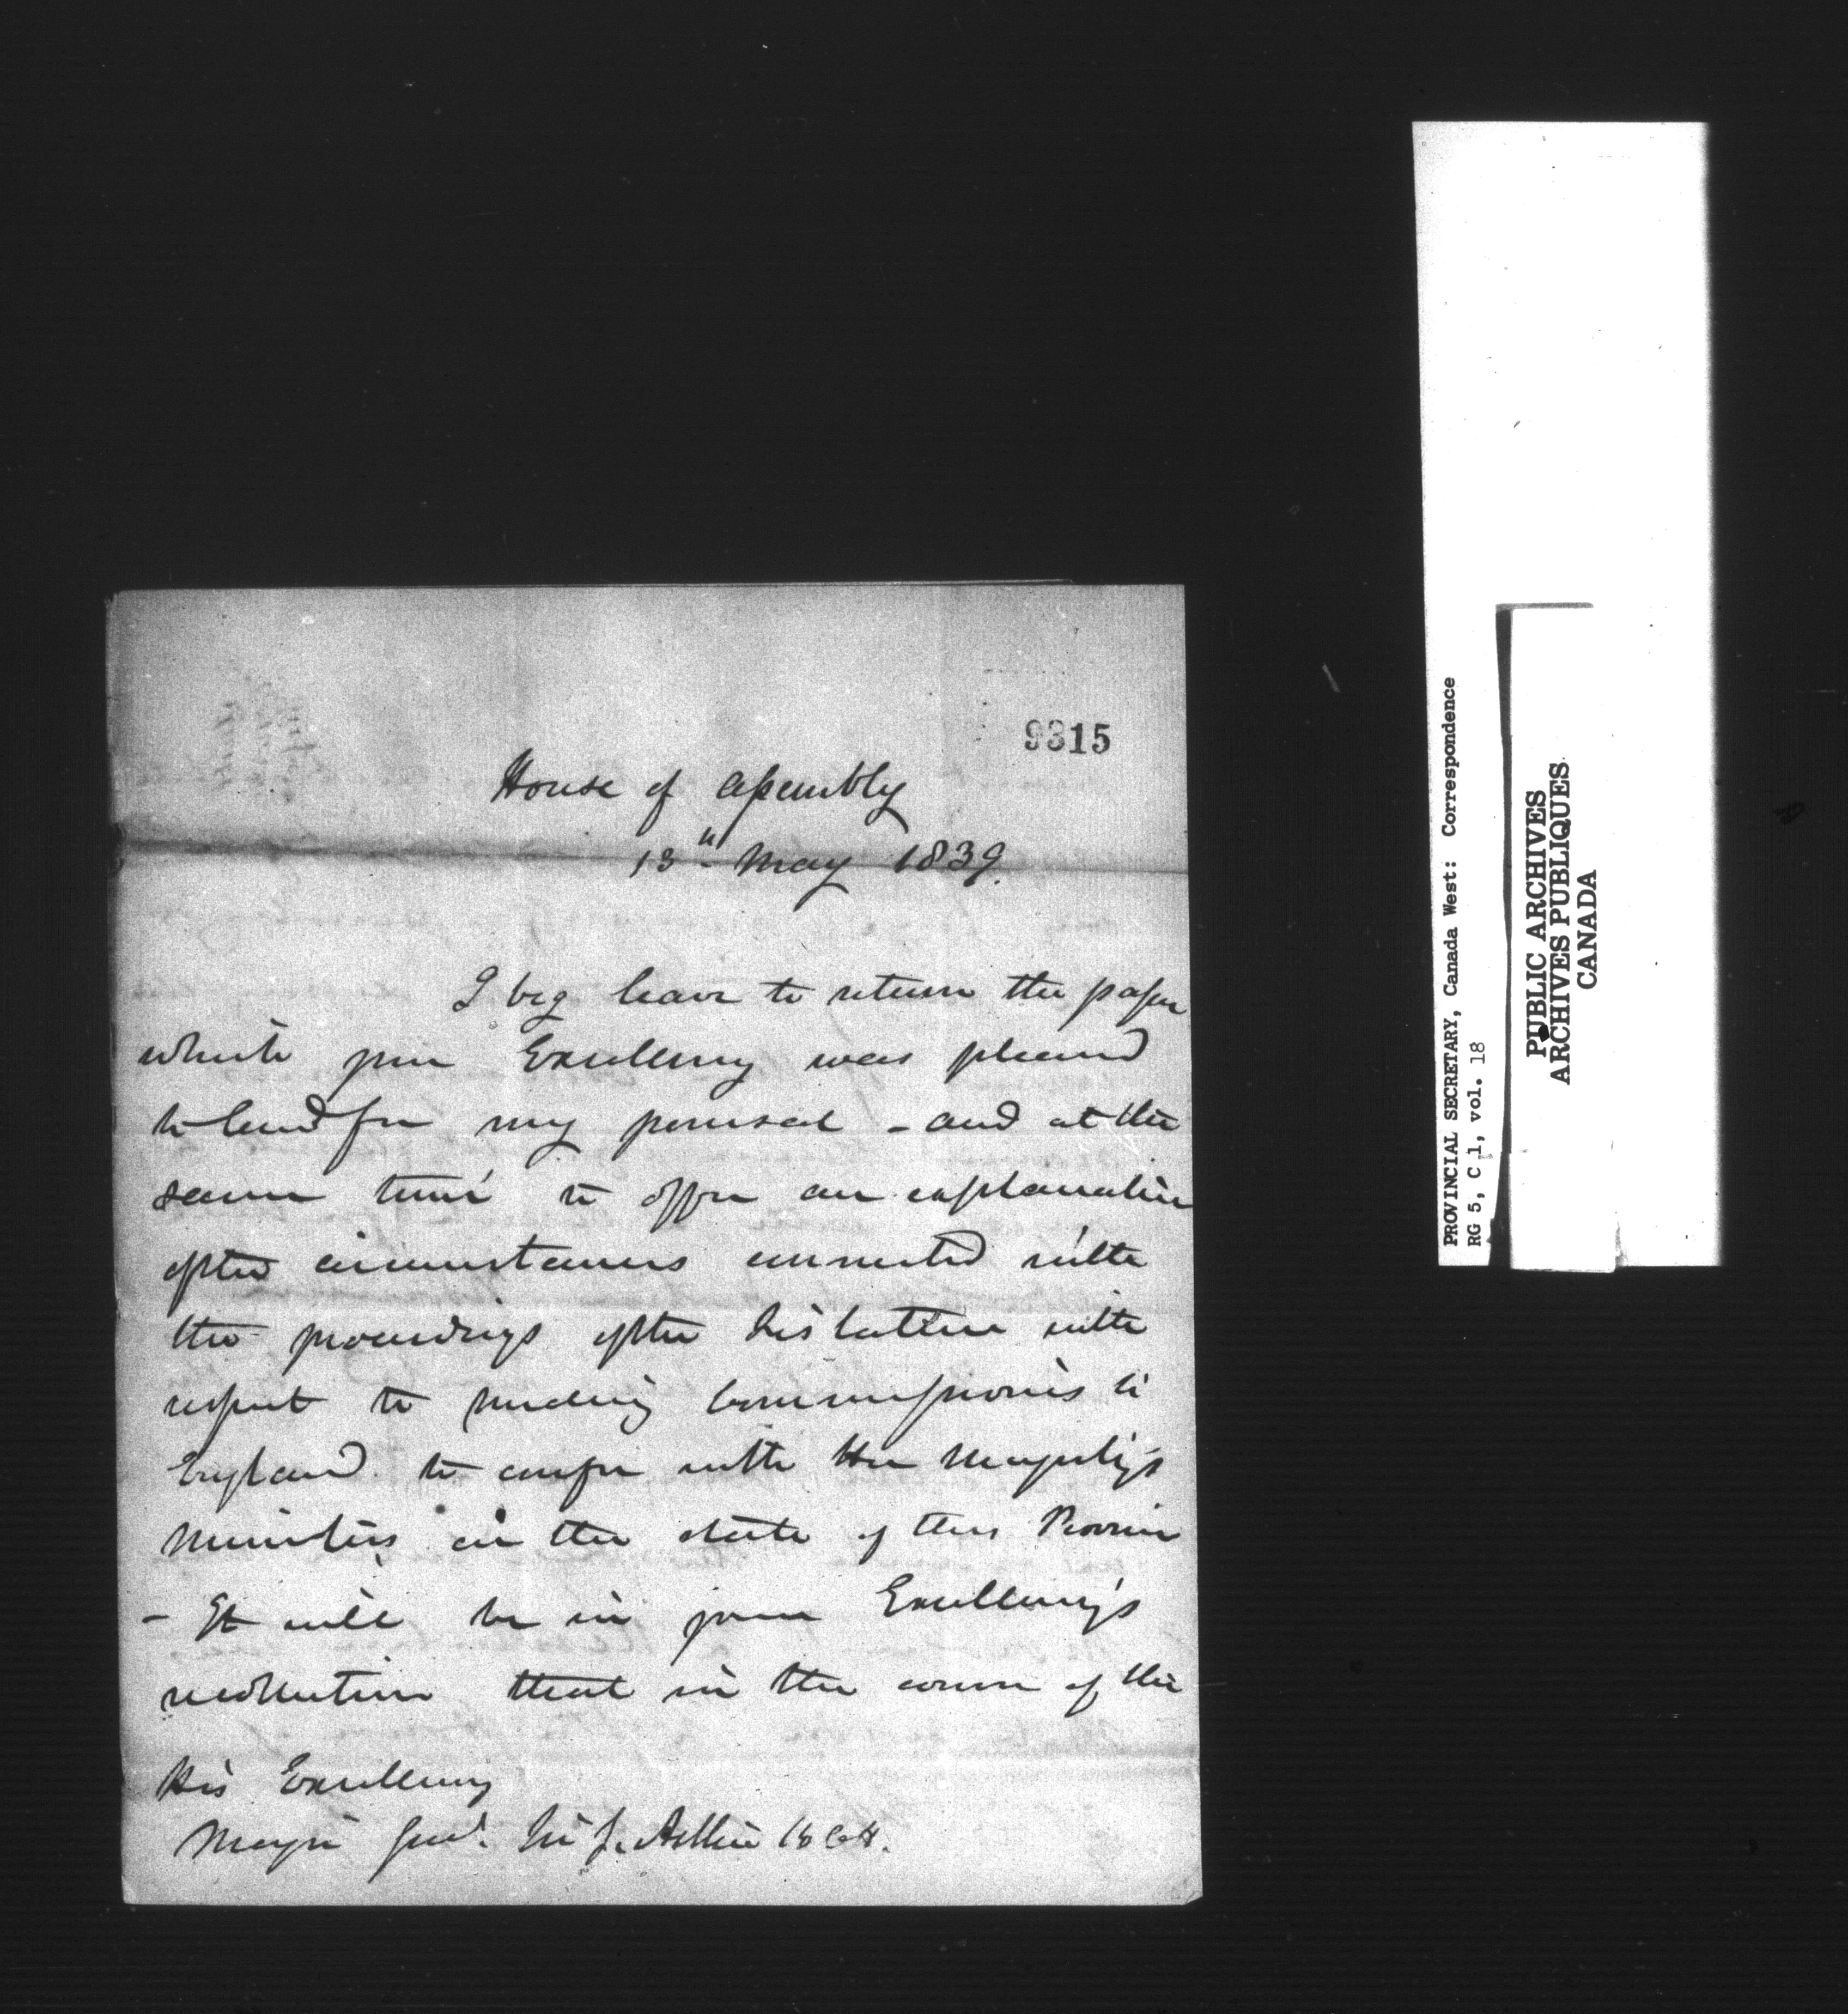 9315
House of Assembly
13th May 1839.
I beg leave to return the paper
which your Excellency was pleased
to send for my perusal - and at the
same time to offer an explanation
of the circumstances connected with
the proceedings of the Legislature with
respect to sending Commissioners to
England to confer with Her Majesty's
Ministers on the state of this Province
- It will be in your Excellency's
recollection that in the course of the
His Excellency
Major Genl. Sir G. Arthur KCH.
PROVINCIAL SECRETARY, Canada West: Correspondence
RG 5, C 1, vol. 18
PUBLIC ARCHIVES
ARCHIVES PUBLIQUES
CANADA